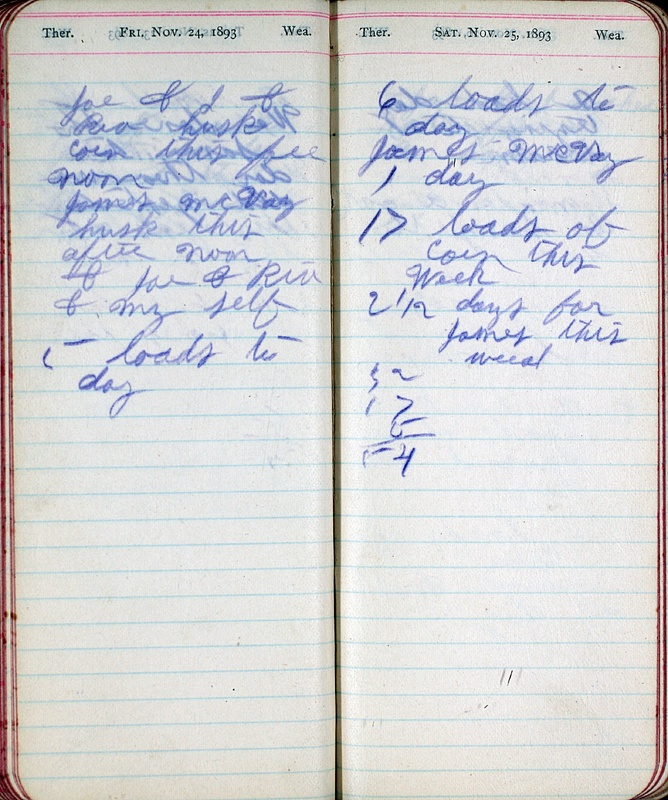 Ther. FRI. NOV. 24, 1893 Wea.
Joe & I &
Rice husk
corn this fore
noon
James McVay
husk this
after noon
& Joe & Rice
& my self
5 loads to
day
Ther. SAT. NOV. 25, 1893 Wea.
6 loads to
day
James McVay
1 day
17 loads of
Corn this
Week
2 1/2 days for
James this
week
32
17
5
54